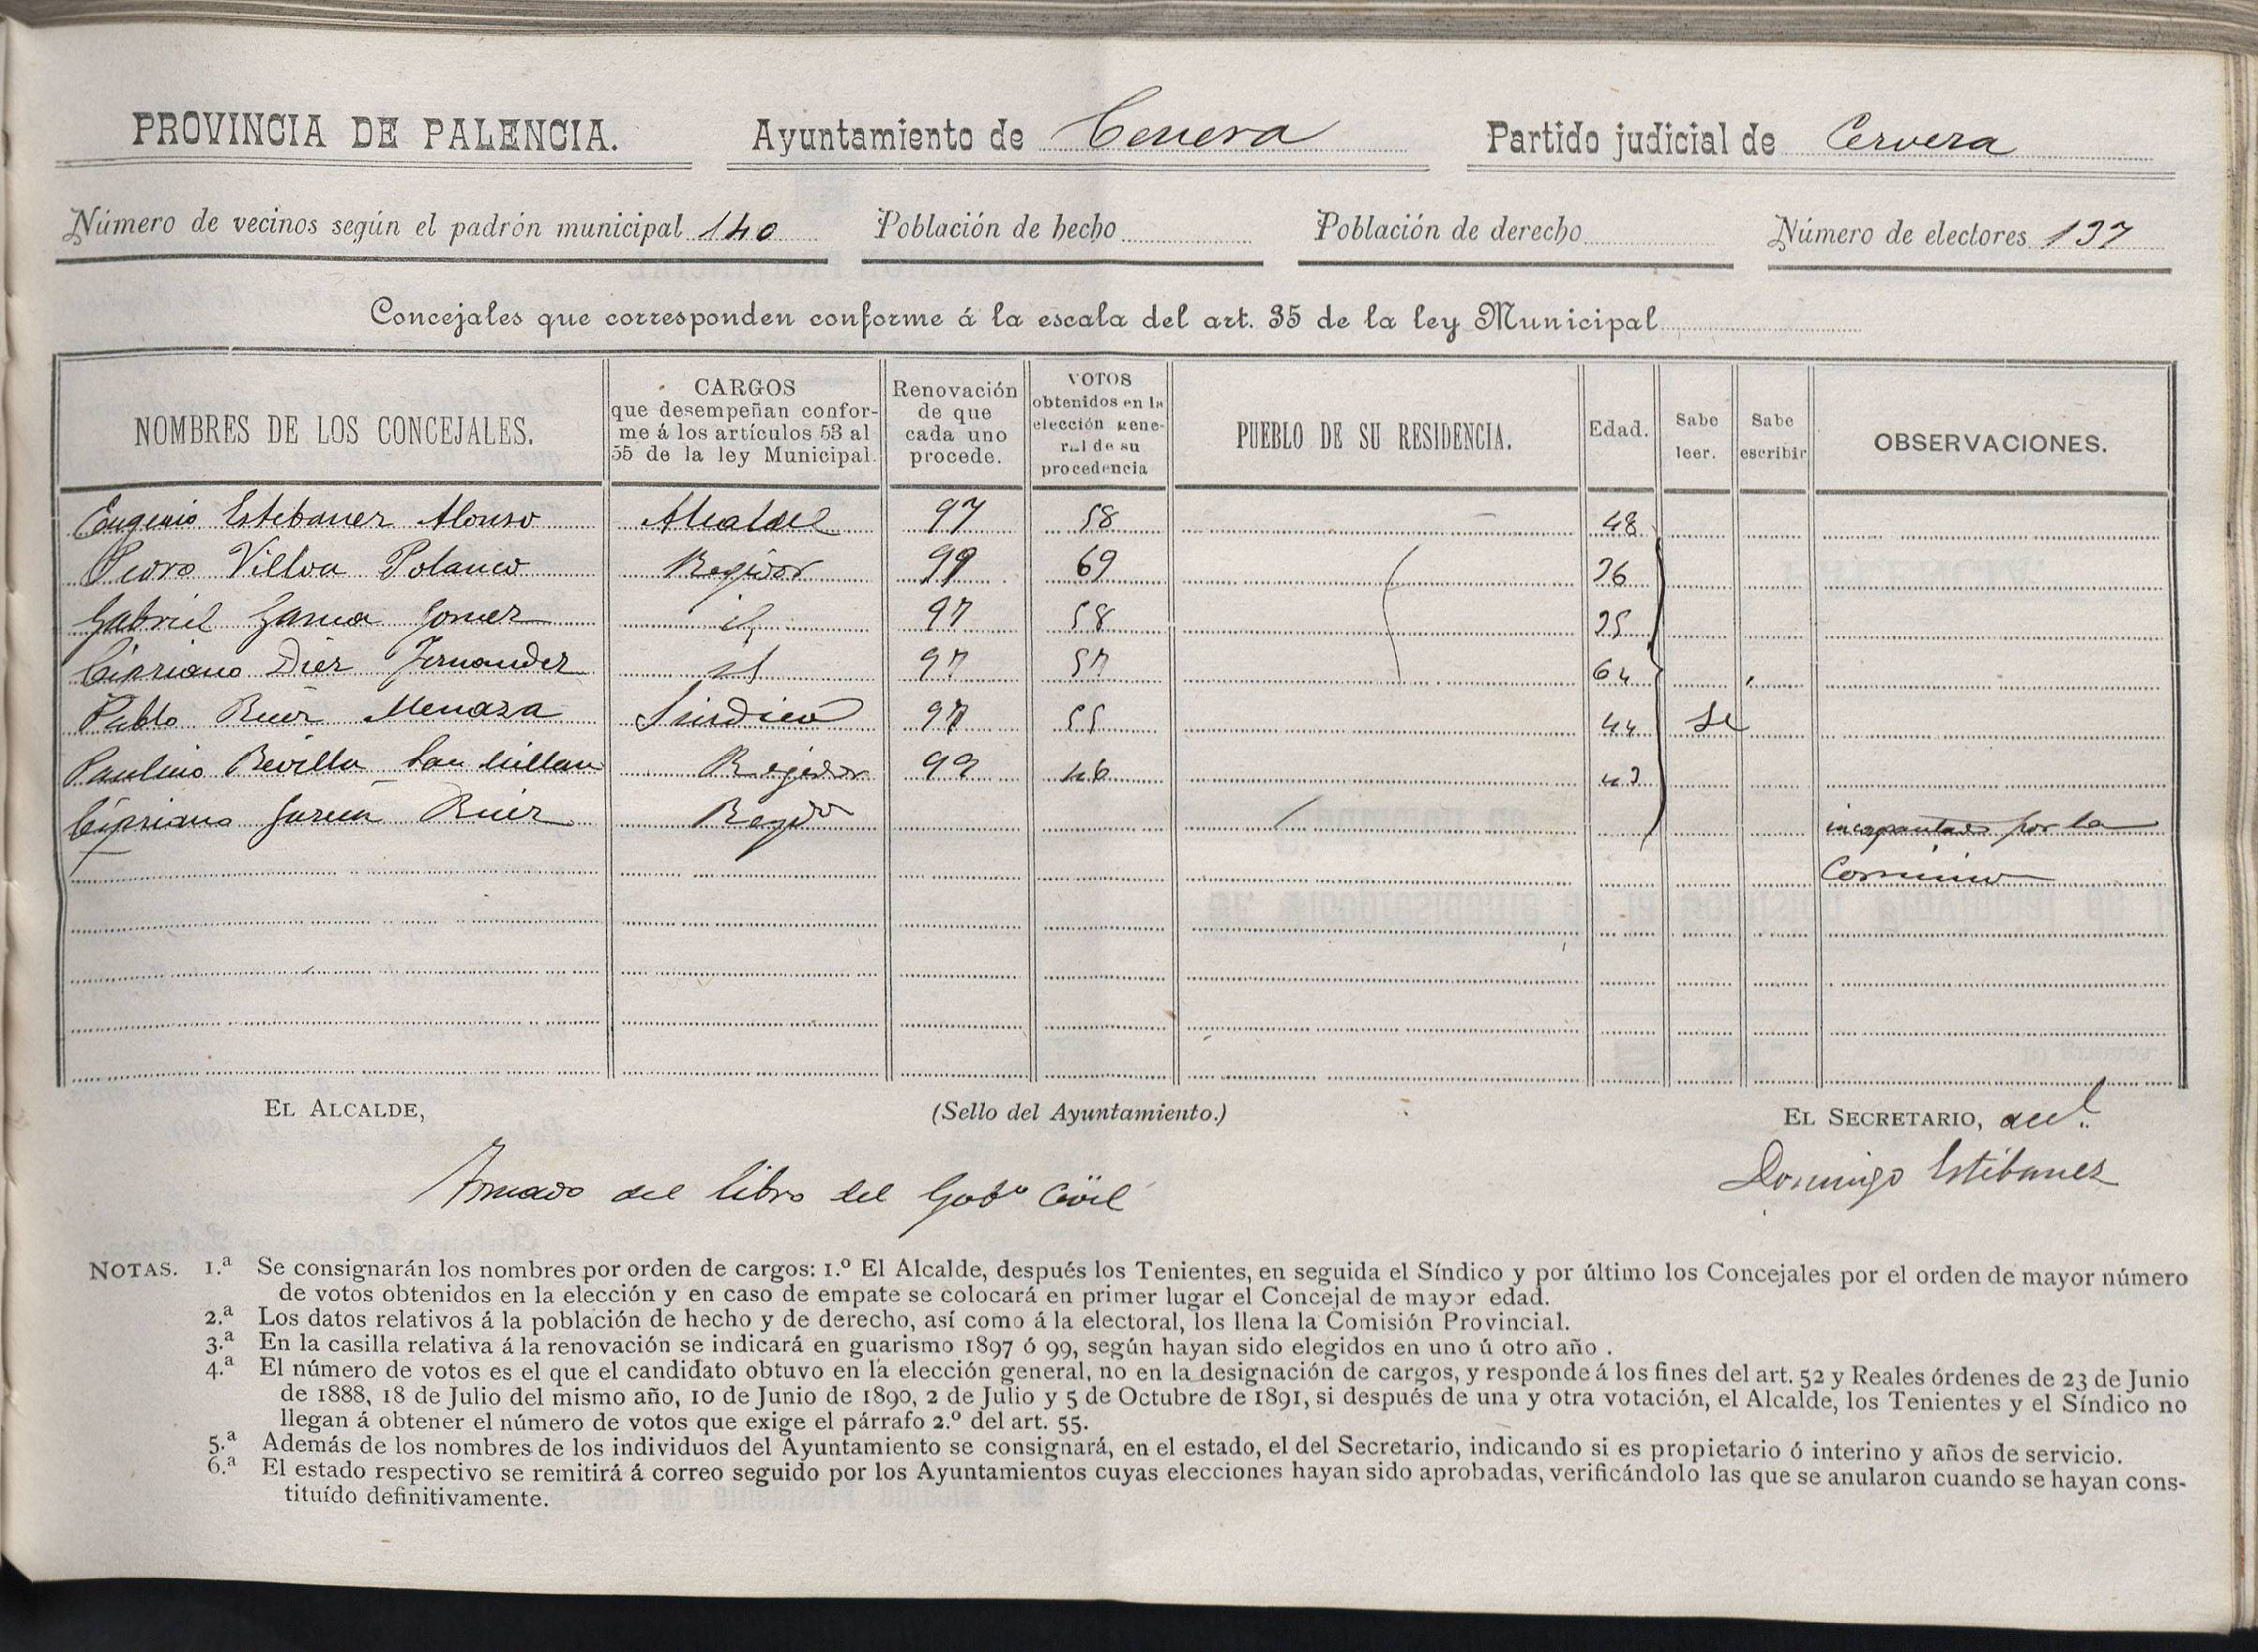 PROVINCIA DE PALENCIA. Ayuntamiento de Cenera Partido judicial de Cervera
Número de vecinos según el padrón municipal 140 Población de hecho Población de derecho Número de electores 137
Concejales que corresponden conforme á la escala del art. 35 de la ley Municipal
NOMBRES DE LOS CONCEJALES. CARGOS que desempeñan conforme á los artículos 53 al 55 de la ley Municipal. Renovación de que cada uno procede. VOTOS obtenidos en la elección general de su procedencia PUEBLO DE SU RESIDENCIA. Edad. Sabe leer. Sabe escribir OBSERVACIONES.
Eugenio Estebanez Alonso Alcalde 97 58 48
Pedro Villva Polanco Regidor 99 69 36
Gabriel Garcia Gomez id 97 58 35
Cipriano Diez Fernandez id 97 57 64
Pablo Ruiz Menaza Sindico 97 55 44 Si
Paulino Revilla San Millan Regidor 99 46 43
Cipriano García Ruiz Regidor incapacitado por la
Comision
EL ALCALDE, (Sello del Ayuntamiento.) EL SECRETARIO, acc.l
Tomado del libro del Gob.º Civil Domingo Estébanez
NOTAS. 1.ª Se consignarán los nombres por orden de cargos: 1.º El Alcalde, después los Tenientes, en seguida el Síndico y por último los Concejales por el orden de mayor número
de votos obtenidos en la elección y en caso de empate se colocará en primer lugar el Concejal de mayor edad.
2.ª Los datos relativos á la población de hecho y de derecho, así como á la electoral, los llena la Comisión Provincial.
3.ª En la casilla relativa á la renovación se indicará en guarismo 1897 ó 99, según hayan sido elegidos en uno ú otro año.
4.ª El número de votos es el que el candidato obtuvo en la elección general, no en la designación de cargos, y responde á los fines del art. 52 y Reales órdenes de 23 de Junio
de 1888, 18 de Julio del mismo año, 10 de Junio de 1890, 2 de Julio y 5 de Octubre de 1891, si después de una y otra votación, el Alcalde, los Tenientes y el Síndico no
llegan á obtener el número de votos que exige el párrafo 2.º del art. 55.
5.ª Además de los nombres de los individuos del Ayuntamiento se consignará, en el estado, el del Secretario, indicando si es propietario ó interino y años de servicio.
6.ª El estado respectivo se remitirá á correo seguido por los Ayuntamientos cuyas elecciones hayan sido aprobadas, verificándolo las que se anularon cuando se hayan cons-
tituído definitivamente.